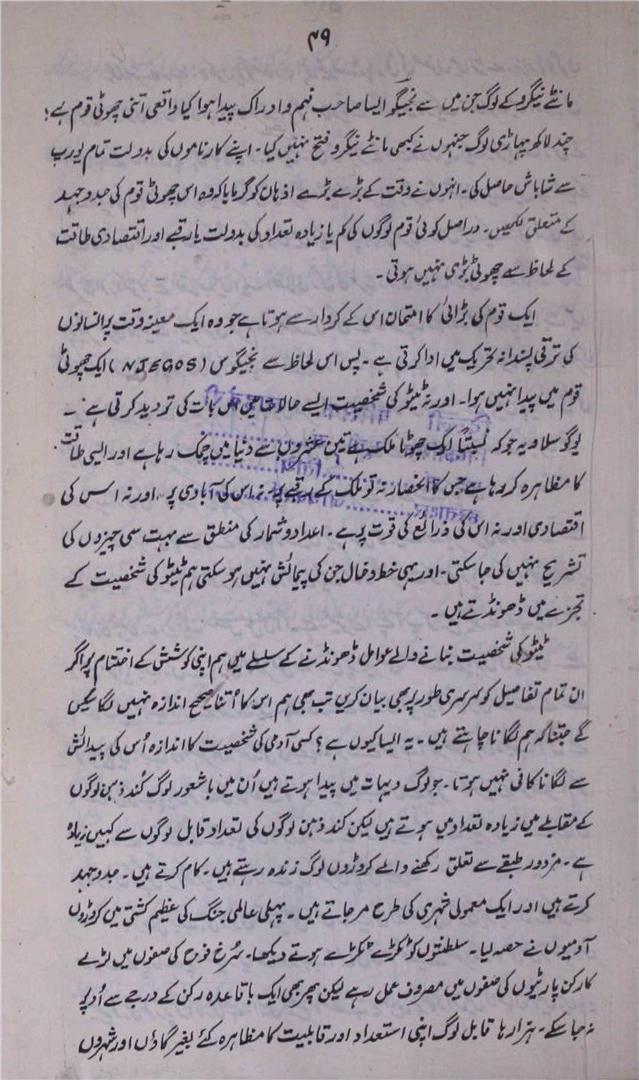 ۴۹
مانٹے نیگرو کے لوگ جن میں سے نجیگو ایسا صاحب فہم و ادراک پیدا ہوا کیا واقعی اتنی چھوٹی قوم ہے؟
چند لاکھ پہاڑی لوگ جنہوں نے کبھی مانٹے نیگرو فتح نہیں کیا۔ اپنے کارناموں کی بدولت تمام یورپ
سے شاباش حاصل کی۔ انہوں نے وقت کے بڑے بڑے اذہان کو گرمایا کہ وہ اس چھوٹی قوم کی جدوجہد
کے متعلق لکھیں۔ دراصل کوئی قوم لوگوں کی کم یا زیادہ تعداد کی بدولت یا رقبے اور اقتصادی طاقت
کے لحاظ سے چھوٹی بڑی نہیں ہوتی۔
ایک قوم کی بڑائی کا امتحان اس کے کردار سے ہوتا ہے جو وہ ایک معینہ وقت پر انسانوں
کی ترقی پسندانہ تحریک میں ادا کرتی ہے۔ پس اس لحاظ سے نجیگوس (NJEGOS) ایک چھوٹی
قوم میں پیدا نہیں ہوا۔ اور نہ ٹیٹو کی شخصیت ایسے حالات میں اس بات کی تردید کرتی ہے۔
یوگوسلاویہ جو کہ نسبتاً ایک چھوٹا ملک ہے تین عشروں سے دنیا میں چمک رہا ہے اور ایسی طاقت
کا مظاہرہ کر رہا ہے جس کا انحصار نہ تو ملک کے رقبے پر نہ اس کی آبادی پر، اور نہ اس کی
اقتصادی اور نہ اس کی ذرائع کی قوت پر ہے۔ اعداد و شمار کی منطق سے بہت سی چیزوں کی
تشریح نہیں کی جا سکتی۔ اور یہی خط و خال جن کی پیمائش نہیں ہو سکتی ہم ٹیٹو کی شخصیت کے
تجزے میں ڈھونڈتے ہیں۔
ٹیٹو کی شخصیت بنانے والے عوامل ڈھونڈنے کے سلسلے میں ہم اپنی کوشش کے اختتام پر اگر
ان تمام تفاصیل کو سرسری طور پر بھی بیان کریں تب بھی ہم اس کا اُتنا صحیح اندازہ نہیں لگا سکیں
گے جتنا کہ ہم لگانا چاہتے ہیں۔ یہ ایسا کیوں ہے؟ کسی آدمی کی شخصیت کا اندازہ اُس کی پیدائش
سے لگانا کافی نہیں ہوتا۔ جو لوگ دیہات میں پیدا ہوتے ہیں اُن میں باشعور لوگ کُند ذہن لوگوں
کے مقابلے میں زیادہ تعداد میں ہوتے ہیں لیکن کند ذہن لوگوں کی تعداد قابل لوگوں سے کہیں زیادہ
ہے۔ مزدور طبقے سے تعلق رکھنے والے کروڑوں لوگ زندہ رہتے ہیں۔ کام کرتے ہیں۔ جدوجہد
کرتے ہیں اور ایک معمولی شہری کی طرح مر جاتے ہیں۔ پہلی عالمی جنگ کی عظیم کشتی میں کروڑوں
آدمیوں نے حصہ لیا۔ سلطنتوں کو ٹکڑے ٹکڑے ہوتے دیکھا۔ سُرخ فوج کی صفوں میں لڑے
کارکن پارٹیوں کی صفوں میں مصروف عمل رہے لیکن پھر بھی ایک باقاعدہ رکن کے درجے سے اُوپر
نہ جا سکے۔ ہزارہا قابل لوگ اپنی استعداد اور قابلیت کا مظاہرہ کئے بغیر گاؤں اور شہروں